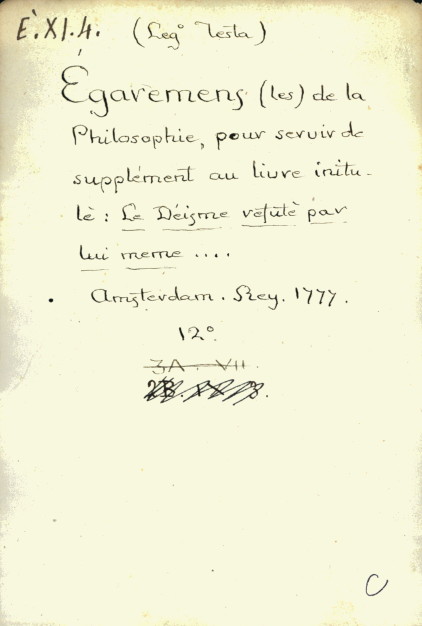 È.XI.4. (Leg.º Testa)
Égaremens (les) de la
Philosophie, pour servir de
supplément au livre initu-
lè : Le Déisme réfutè par
lui meme ....
Amsterdam. Rey. 1777.
12º
3A. VII.
C